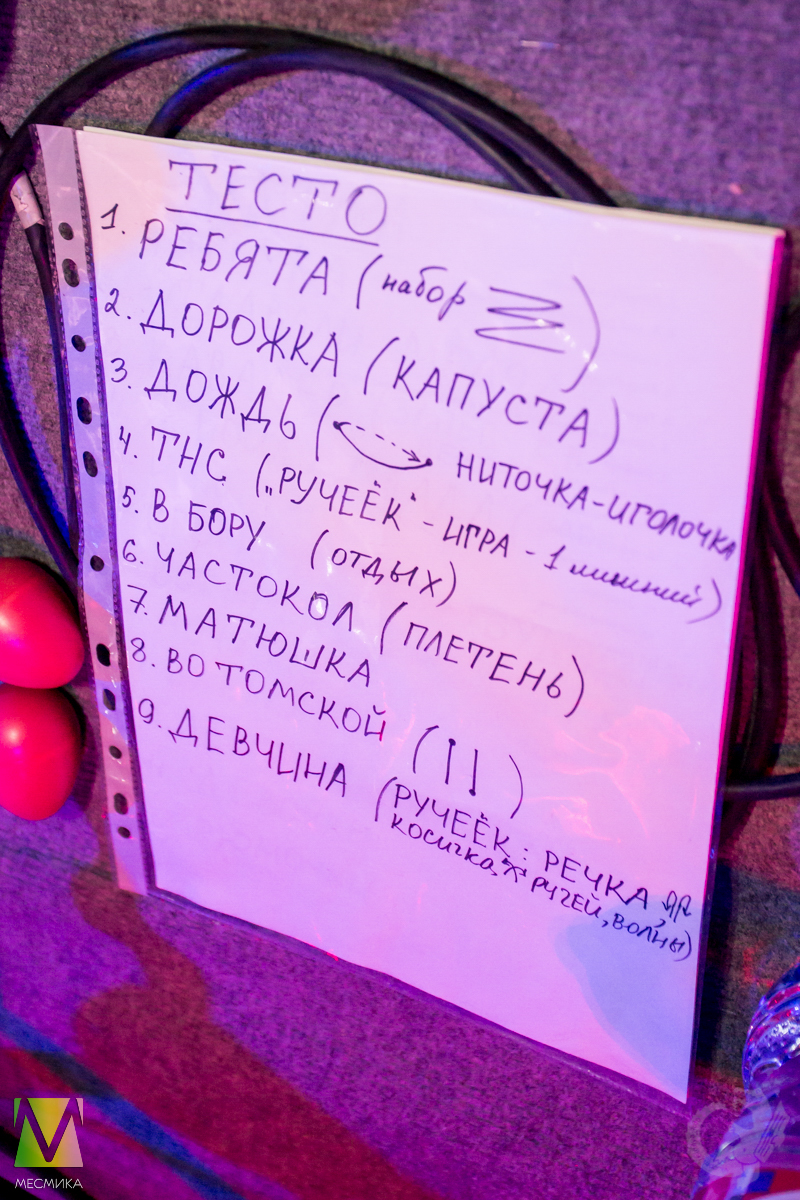 ТЕСТО
1. РЕБЯТА (набор )
2. ДОРОЖКА (КАПУСТА)
3. ДОЖДЬ ( НИТОЧКА-ИГОЛОЧКА
4. ТНС („РУЧЕЁК" - ИГРА - 1 линий)
5. В БОРУ (ОТДЫХ)
6. ЧАСТОКОЛ (ПЛЕТЕНЬ)
7. МАТЮШКА
8. ВО ТОМСКОЙ ( )
9. ДЕВЧИНА (РУЧЕЁК: РЕЧКА,
КОСИЧКА, РУЧЕЙ, ВОЛНЫ)
МЕСМИКА